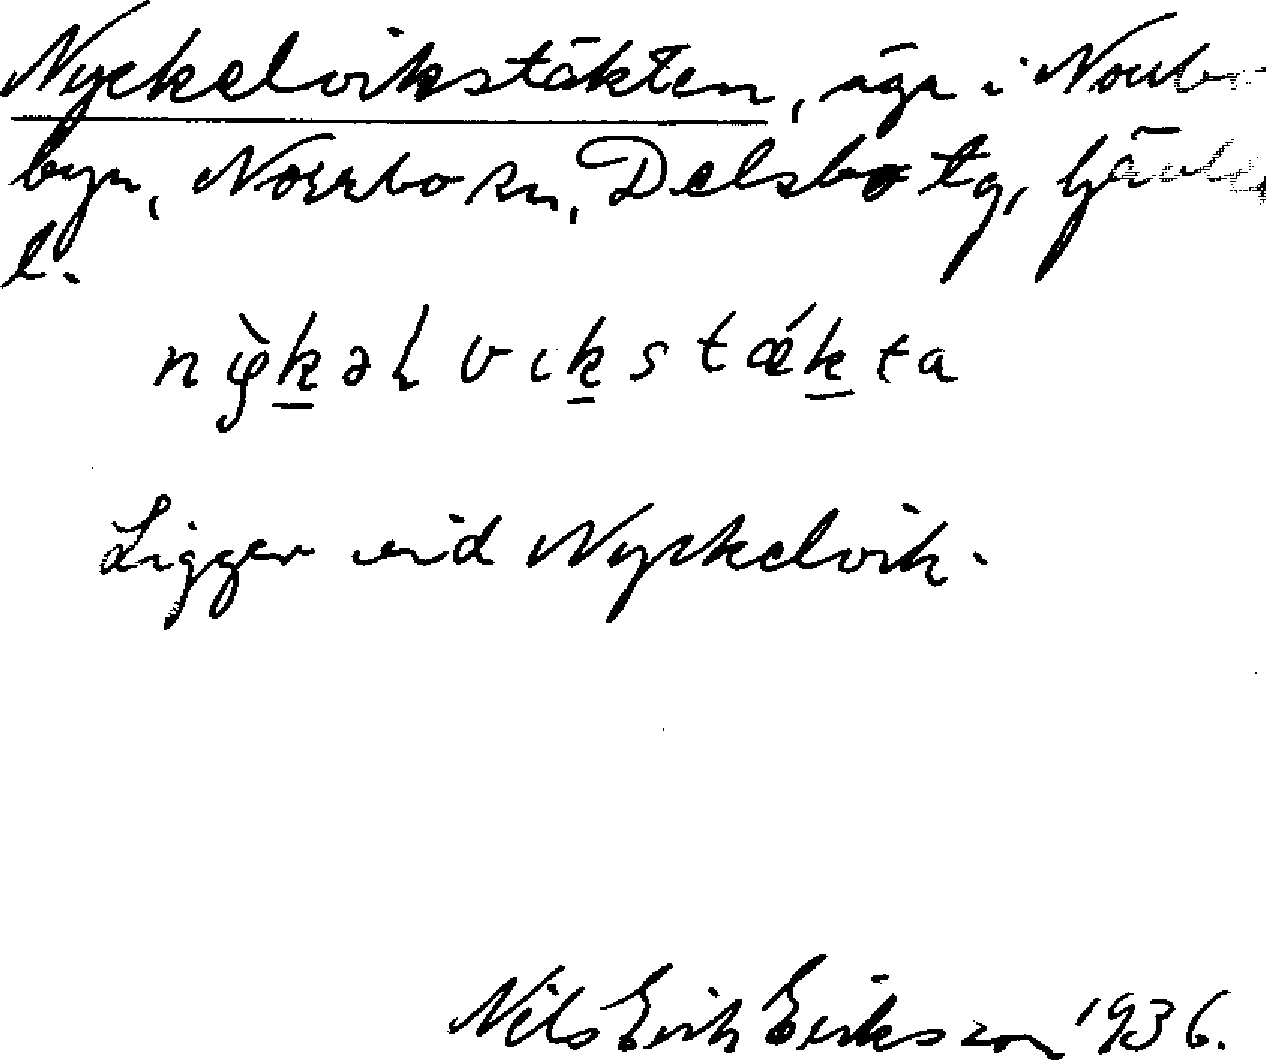 Nyckelvikstäkten, äga i Norrbo
byn, Norrbo sn, Delsbo tg, Gävleb.
l.
nỳk̲əl vık̲stǽk̲ta
Ligger vid Nyckelvik.
Nils Erik Eriksson 1936.